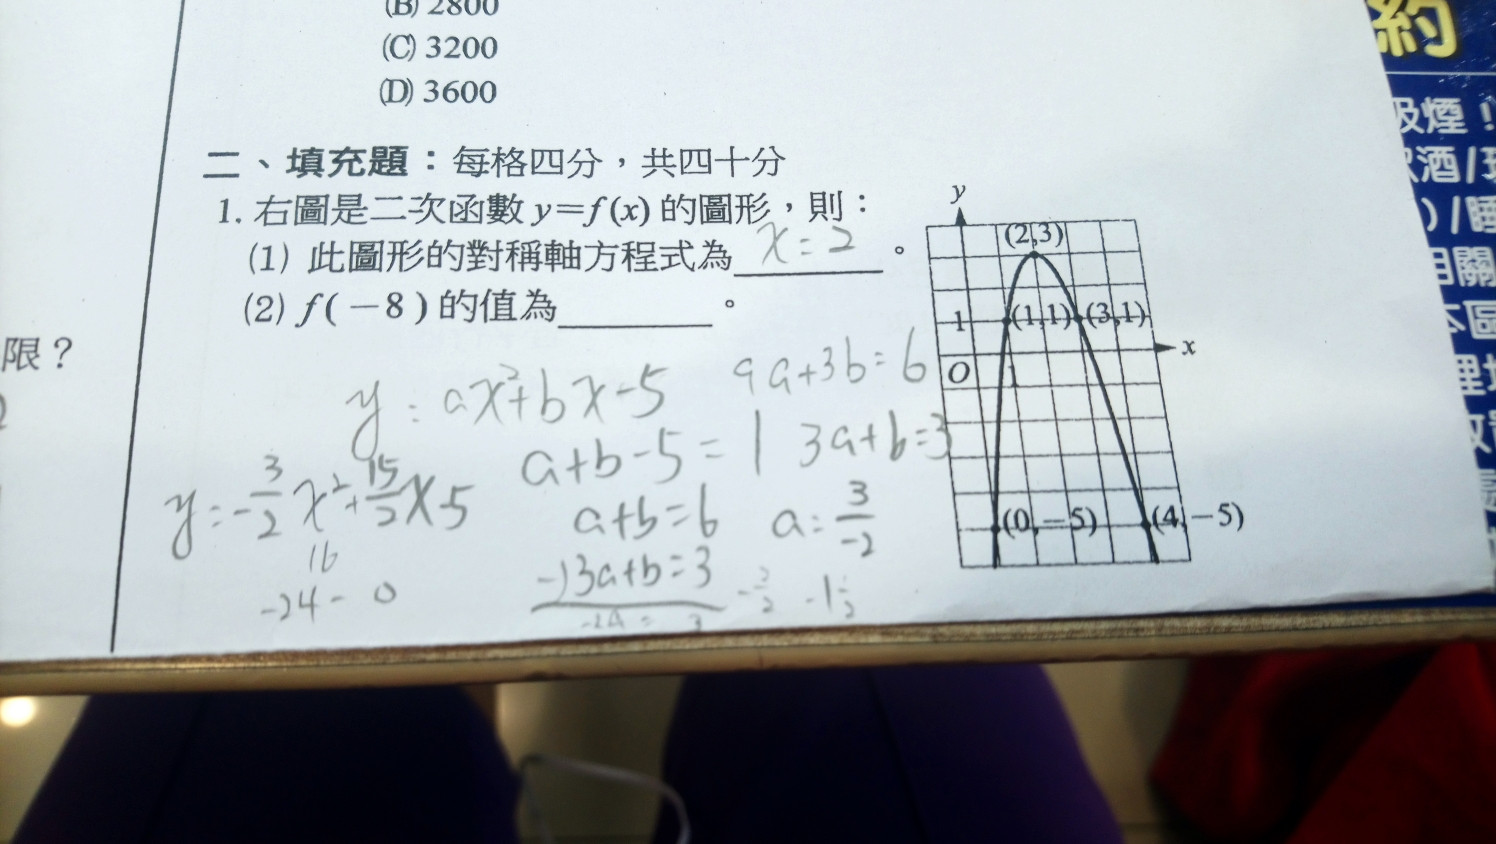 (B) 2800
(C) 3200
(D) 3600
二、填充題：每格四分，共四十分
1. 右圖是二次函數 y=f(x) 的圖形，則：
(1) 此圖形的對稱軸方程式為 x=2 。
(2) f(－8) 的值為 。
限？
y=ax²+bx-5
9a+3b=6
a+b-5=1
3a+b=3
y=-3/2 x²+15/2 x-5
a+b=6
a=3/-2
16
-)3a+b=3
-24-0
-2a= 3
-3/2
-1 1/2
y
(2,3)
1
(1,1)
(3,1)
x
O
1
(0,－5)
(4,－5)
約
吸煙！
酒/
)/睡
相關
本區